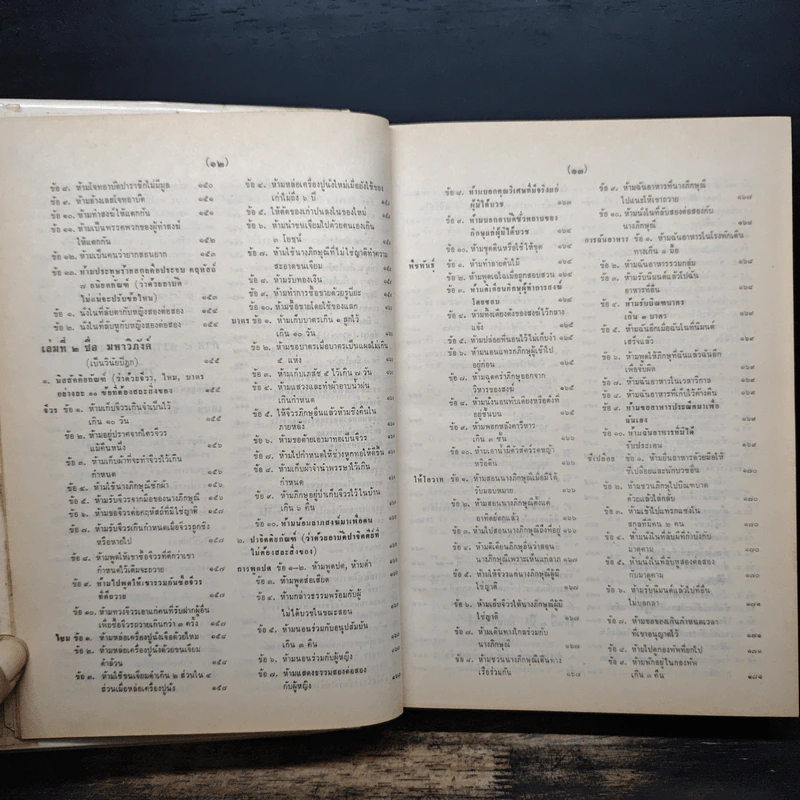 (๑๒)
ข้อ ๘. ห้ามโจทอาบัติปาราชิกไม่มีมูล ๑๕๐
ข้อ ๙. ห้ามอ้างเลสโจทอาบัติ ๑๕๑
ข้อ ๑๐. ห้ามทำสงฆ์ให้แตกกัน ๑๕๑
ข้อ ๑๑. ห้ามเป็นพรรคพวกของผู้ทำสงฆ์
ให้แตกกัน ๑๕๒
ข้อ ๑๒. ห้ามเป็นคนว่ายากสอนยาก ๑๕๒
ข้อ ๑๓. ห้ามประทุษร้ายสกุลคือประจบ คฤหัสถ์
๒ อนิยตกัณฑ์ (ว่าด้วยอาบัติ
ไม่แน่จะปรับข้อไหน) ๑๕๓
ข้อ ๑. นั่งในที่ลับตากับหญิงสองต่อสอง
ข้อ ๒. นั่งในที่ลับหูกับหญิงสองต่อสอง
เล่มที่ ๒ ชื่อ มหาวิภังค์
(เป็นวินัยปิฎก) ๑๕๕
๑. นิสสัคคิยกัณฑ์ (ว่าด้วยจีวร, ไหม, บาตร
อย่างละ ๑๐ ข้อที่ต้องสละสิ่งของ
จีวร ข้อ ๑. ห้ามเก็บจีวรเกินจำเป็นไว้
เกิน ๑๐ วัน ๑๕๕
ข้อ ๒. ห้ามอยู่ปราศจากไตรจีวร
แม้คืนหนึ่ง
ข้อ ๓. ห้ามเก็บผ้าที่จะทำจีวรไว้เกิน
กำหนด
ข้อ ๔. ห้ามใช้นางภิกษุณีซักผ้า
ข้อ ๕. ห้ามรับจีวรจากมือของนางภิกษุณี
ข้อ ๖. ห้ามขอจีวรต่อคฤหัสถ์ที่มิใช่ญาติ
ข้อ ๗. ห้ามรับจีวรเกินกำหนดเมื่อจีวรถูกชิง
หรือหายไป
ข้อ ๘. ห้ามพูดให้เขาซื้อจีวรที่ดีกว่าเขา
กำหนดไว้เดิมจะถวาย
ข้อ ๙. ห้ามไปพูดให้เขารวมกันซื้อจีวร
ที่ดีถวาย
ข้อ ๑๐. ห้ามทวงจีวรเอาแก่คนที่รับฝากผู้อื่น
เพื่อซื้อจีวรถวายเกินกว่า ๓ ครั้ง
ไหม ข้อ ๑. ห้ามหล่อเครื่องปูนั่งเจือด้วยไหม
ข้อ ๒. ห้ามหล่อเครื่องปูนั่งด้วยขนเจียม
ดำล้วน ๑๕๘
ข้อ ๓. ห้ามใช้ขนเจียมดำเกิน ๒ ส่วนใน ๔
ส่วนเมื่อหล่อเครื่องปูนั่ง ๑๕๘
ข้อ ๔. ห้ามหล่อเครื่องปูนั่งใหม่เมื่อยังใช้ของ
เก่าไม่ถึง ๖ ปี
ข้อ ๕. ให้ตัดของเก่าปนลงในของใหม่
ข้อ ๖. ห้ามนำขนเจียมไปด้วยตนเองเกิน
๓ โยชน์
ข้อ ๗. ห้ามใช้นางภิกษุณีที่ไม่ใช่ญาติทำความ
สะอาดขนเจียม
ข้อ ๘. ห้ามรับทองเงิน
ข้อ ๙. ห้ามทำการซื้อขายด้วยรูปิยะ
ข้อ ๑๐. ห้ามซื้อขายโดยใช้ของแลก
บาตร ข้อ ๑. ห้ามเก็บบาตรเกิน ๑ ลูกไว้
เกิน ๑๐ วัน
ข้อ ๒. ห้ามขอบาตรเมื่อบาตรเป็นแผลไม่เกิน
๕ แห่ง
ข้อ ๓. ห้ามเก็บเภสัช ๕ ไว้เกิน ๗ วัน
ข้อ ๔. ห้ามแสวงและทำผ้าอาบน้ำฝน
เกินกำหนด
ข้อ ๕. ให้จีวรภิกษุอื่นแล้วห้ามชิงคืนใน
ภายหลัง
ข้อ ๖. ห้ามขอด้ายเอามาทอเป็นจีวร
ข้อ ๗. ห้ามไปกำหนดให้ช่างหูกทอให้ดีขึ้น
ข้อ ๘. ห้ามเก็บผ้าจำนำพรรษาไว้เกิน
กำหนด
ข้อ ๙. ห้ามภิกษุอยู่ป่าเก็บจีวรไว้ในบ้าน
เกิน ๖ คืน
ข้อ ๑๐. ห้ามน้อมลาภสงฆ์มาเพื่อตน
๒. ปาจิตติยกัณฑ์ (ว่าด้วยอาบัติปาจิตตีย์
ที่ไม่ต้องสละสิ่งของ)
การพูดปด ข้อ ๑-๒. ห้ามพูดปด, ห้ามด่า
ข้อ ๓. ห้ามพูดส่อเสียด
ข้อ ๔. ห้ามกล่าวธรรมพร้อมกับผู้
ไม่ได้บวชในขณะสอน
ข้อ ๕. ห้ามนอนร่วมกับอนุปสัมบัน
เกิน ๓ คืน
ข้อ ๖. ห้ามนอนร่วมกับผู้หญิง
ข้อ ๗. ห้ามแสดงธรรมสองต่อสอง
กับผู้หญิง
(๑๓)
ข้อ ๘. ห้ามบอกคุณวิเศษที่มีจริงแก่
ผู้มิได้บวช ๑๖๓
ข้อ ๙. ห้ามบอกอาบัติชั่วหยาบของ
ภิกษุแก่ผู้มิได้บวช ๑๖๓
ข้อ ๑๐. ห้ามขุดดินหรือใช้ให้ขุด ๑๖๓
พืชพันธุ์ ข้อ ๑. ห้ามทำลายต้นไม้
ข้อ ๒. ห้ามพูดเฉไฉเมื่อถูกสอบสวน
ข้อ ๓. ห้ามติเตียนภิกษุผู้ทำการสงฆ์
โดยชอบ ๑๖๔
ข้อ ๔. ห้ามทิ้งเตียงตั่งของสงฆ์ไว้กลาง
แจ้ง
ข้อ ๕. ห้ามปล่อยที่นอนไว้ไม่เก็บงำ
ข้อ ๖. ห้ามนอนแทรกภิกษุผู้เข้าไป
อยู่ก่อน
ข้อ ๗. ห้ามฉุดคร่าภิกษุออกจาก
วิหารของสงฆ์
ข้อ ๘. ห้ามนั่งนอนทับเตียงหรือตั่งที่
อยู่ชั้นบน
ข้อ ๙. ห้ามพอกหลังคาวิหาร
เกิน ๓ ชั้น
ข้อ ๑๐. ห้ามเอาน้ำมีตัวสัตว์รดหญ้า
หรือดิน
ให้โอวาท ข้อ ๑. ห้ามสอนนางภิกษุณีเมื่อมิได้
รับมอบหมาย
ข้อ ๒. ห้ามสอนนางภิกษุณีตั้งแต่
อาทิตย์ตกแล้ว
ข้อ ๓. ห้ามไปสอนนางภิกษุณีถึงที่อยู่
ข้อ ๔. ห้ามติเตียนภิกษุอื่นว่าสอน
นางภิกษุณีเพราะเห็นแก่ลาภ
ข้อ ๕. ห้ามให้จีวรแก่นางภิกษุณีผู้มิ
ใช่ญาติ
ข้อ ๖. ห้ามเย็บจีวรให้นางภิกษุณีผู้มิ
ใช่ญาติ
ข้อ ๗. ห้ามเดินทางไกลร่วมกับ
นางภิกษุณี
ข้อ ๘. ห้ามชวนนางภิกษุณีเดินทาง
เรือร่วมกัน ๑๖๗
ข้อ ๙. ห้ามฉันอาหารที่นางภิกษุณี
ไปแนะให้เขาถวาย ๑๖๗
ข้อ ๑๐. ห้ามนั่งในที่ลับสองต่อสองกับ
นางภิกษุณี
การฉันอาหาร ข้อ ๑. ห้ามฉันอาหารในโรงพักเดิน
ทางเกิน ๑ มื้อ
ข้อ ๒. ห้ามฉันอาหารรวมกลุ่ม
ข้อ ๓. ห้ามรับนิมนต์แล้วไปฉัน
อาหารที่อื่น
ข้อ ๔. ห้ามรับบิณฑบาตร
เกิน ๓ บาตร
ข้อ ๕. ห้ามฉันอีกเมื่อฉันในที่นิมนต์
เสร็จแล้ว
ข้อ ๖. ห้ามพูดให้ภิกษุที่ฉันแล้วฉันอีก
เพื่อจับผิด
ข้อ ๗. ห้ามฉันอาหารในเวลาวิกาล
ข้อ ๘. ห้ามฉันอาหารที่เก็บไว้ค้างคืน
ข้อ ๙. ห้ามขออาหารประณีตมาเพื่อ
ฉันเอง ๑๖๙
ข้อ ๑๐. ห้ามฉันอาหารที่มิได้
รับประเคน
ชีเปลือย ข้อ ๑. ห้ามยื่นอาหารด้วยมือให้
ชีเปลือยและนักบวชอื่น ๑๗๐
ข้อ ๒. ห้ามชวนภิกษุไปบิณฑบาต
ด้วยแล้วไล่กลับ
ข้อ ๓. ห้ามเข้าไปแทรกแซงใน
สกุลที่มีคน ๒ คน
ข้อ ๔. ห้ามนั่งในที่ลับมีที่กำบังกับ
มาตุคาม
ข้อ ๕. ห้ามนั่งในที่ลับหูสองต่อสอง
กับมาตุคาม
ข้อ ๖. ห้ามรับนิมนต์แล้วไปที่อื่น
ไม่บอกลา
ข้อ ๗. ห้ามขอของเกินกำหนดเวลา
ที่เขาอนุญาตไว้ ๑๗๑
ข้อ ๘. ห้ามไปดูกองทัพที่ยกไป
ข้อ ๙. ห้ามพักอยู่ในกองทัพ
เกิน ๓ คืน